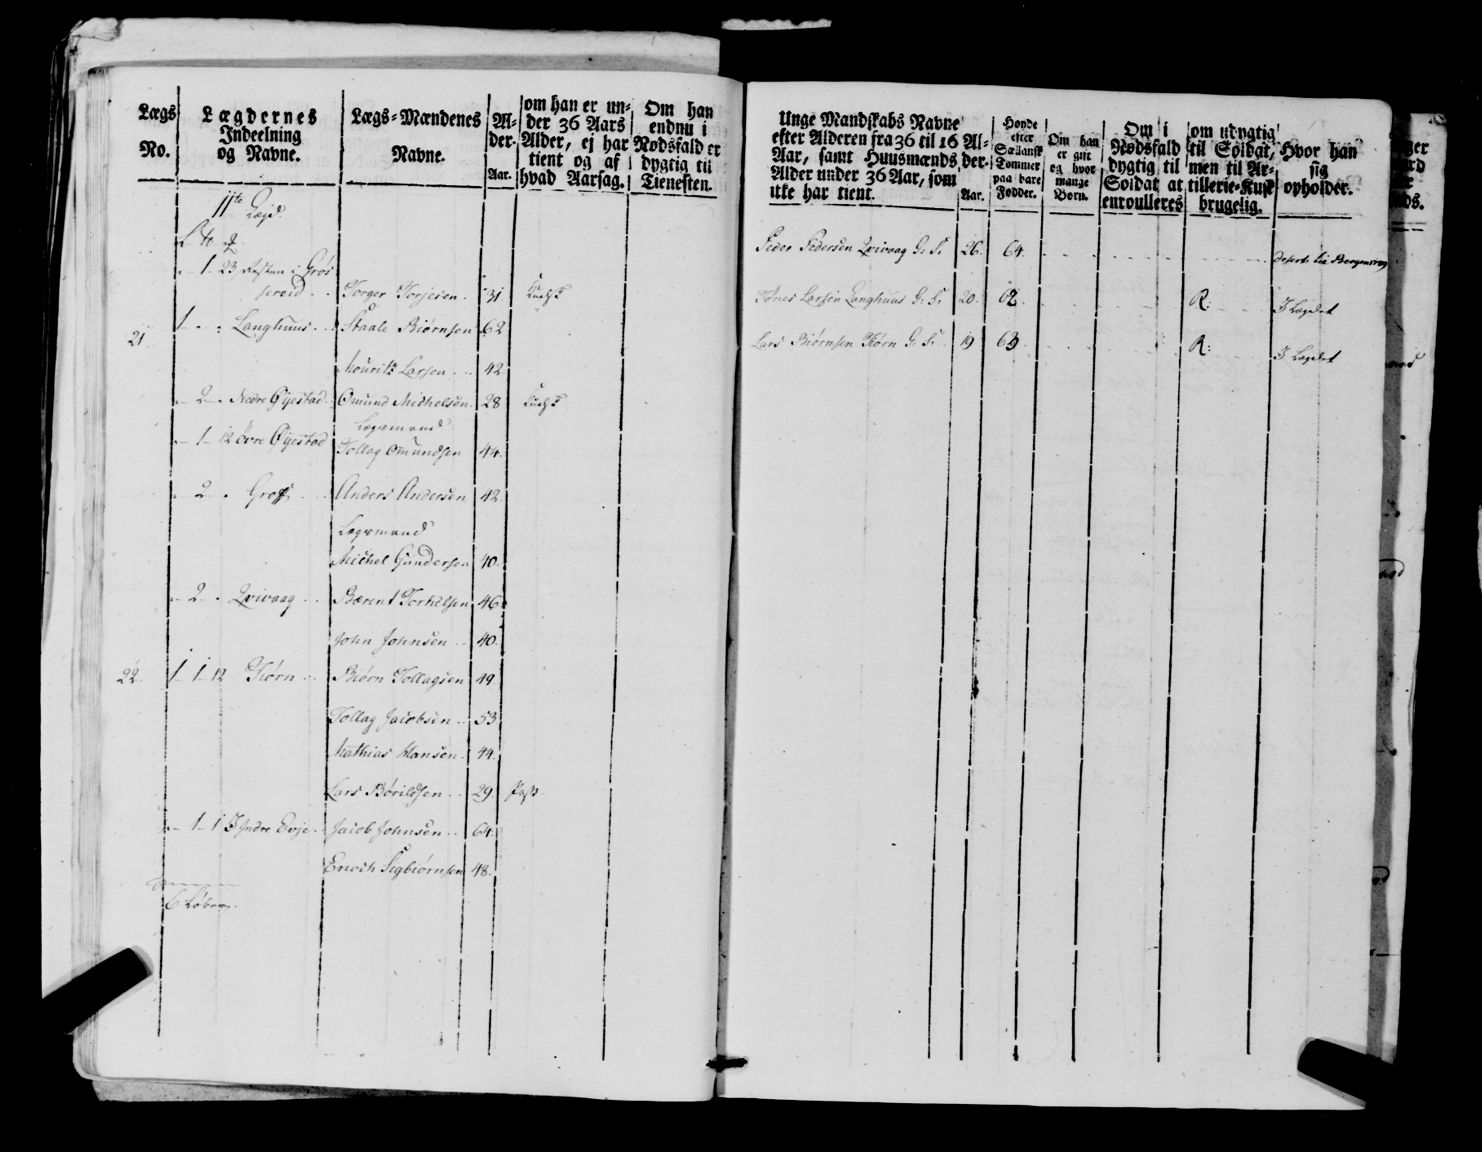 Lægs No.
Lægdernes Indeelning og Navne.
Lægs-Mændenes Navne.
Al-der. Aar.
om han er un-
der 36 Aars
Alder, ej har
tient og af
hvad Aarsag.
Om han
endnu i
Nødsfald er
dygtig til
Tienesten.
11te Lægd
23 Grøs
Torger Torjesen 31
21 1 Langhuus Staale Biørnson 62
Mouritz Larsen 42
2 Nedre Øÿestad Omund Michelsen 28
Lægsmand
1 12 Øvre Øÿestad Tollag Omundsen 44
2 Anders Andersen 42
Lægsmand
Michel Gundersen 40
2 Qvivaag Bærent Torkelsen 46
John Johnsen 40
22 1 1 12 Kiørn Biørn Tollagsen 49
Tollag Jacobsen 53
Mathias Hansen 44
Lars 29 Pass
1 1 Indre Evje Jacob Johnsen 64
Enoch Sigbiørnsen 48
6 Løbere
Unge Mandskabs Navne
efter Alderen fra 36 til 16
Aar, samt Huusmænds
Alder under 36 Aar, som
ikke har tient.
Al-
der.
Aar.
Høyde
efter
Siællansk
Tommer
paa bare
Fødder.
Om han
er gift
og hvor
mange
Børn.
Om i
Nødsfald
dygtig til
Soldat at
enroulleres
om udygtig
til Soldat,
men til Ar-
tillerie-Kusk
brugelig.
Hvor han
sig
opholder.
Peder Pedersen Qvivaag G: S: 26 64
Tønes Larsen Langhuus G: S: 20 62 R: I Lægdet
Lars Biørnsen Kiørn G: S: 19 63 R: I Lægdet